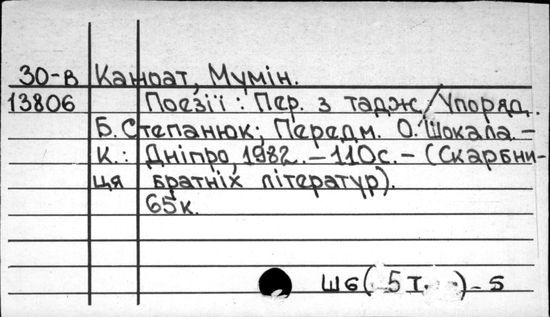 30-в Каноат, Мумін.
13806 Поезії: Пер. з тадж./Упоряд.
Б. Степанюк; Передм. О. Шокала.–
К.: Дніпро, 1982.–110с.–(Скарбни-
ця братніх літератур).
65к.
Ш6( 5І. )–5